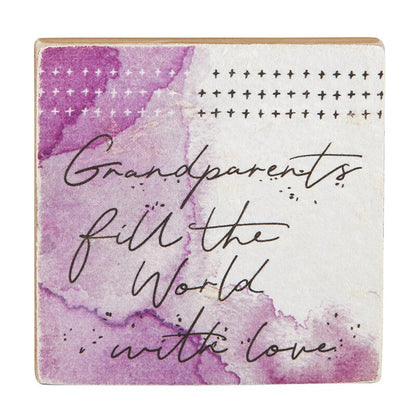 Grandparents
fill the
World
with love